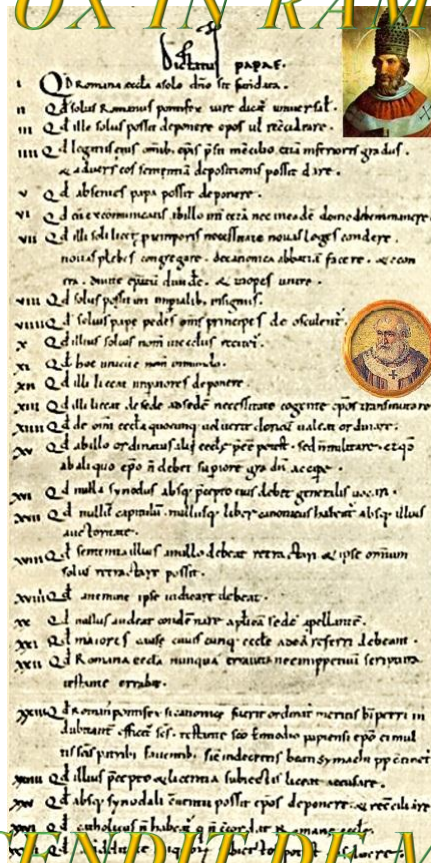 OX IN RAM
Dictatus papae.
I Qd Romana eccla a solo dno sit fundata.
II Qd solus Romanus pontifex iure dicat universal.
III Qd ille solus possit deponere epos ul reconciliare.
IIII Qd legatus eius omib; epis psit in concilio etia inferioris gradus.
& adversus eos sententia depositionis possit dare.
V Qd absentes papa possit deponere.
VI Qd cu excomunicatis ab illo int cetera nec in eade domo debemus manere.
VII Qd illi soli licet p temporis necessitate novas leges condere.
novas plebes congregare. de canonica abbatia facere. & econ
tra. divite episcopatu dividere. & inopes unire.
VIII Qd solus possit uti imperialib; insigniis.
VIIII Qd solius pape pedes oms principes deosculent.
X Qd illius solius nom in ecclis recitet.
XI Qd hoc unicu e nom in mundo.
XII Qd illi liceat imperatores deponere.
XIII Qd illi liceat de sede ad sede necessitate cogente epos transmutare
XIIII Qd de omi eccla quocunq; voluerit clericu valeat ordinare.
XV Qd ab illo ordinatus alii eccle pee potest. sed n militare. et qd
ab aliquo epo n debet superiore gradu accipe.
XVI Qd nulla synodus absq; pcepto eius debet generalis vocari.
XVII Qd nullu capitulu. nullusq; liber canonicus habeat absq; illius
auctoritate.
XVIII Qd sententia illius a nullo debeat retractari & ipse omnium
solus retractare possit.
XVIIII Qd a nemine ipse iudicari debeat.
XX Qd nullus audeat condemnare apostolica sede apellante.
XXI Qd maiores cause cuiuscunq; eccle ad ea referri debeant.
XXII Qd Romana eccla nunqua erravit nec imppetuu scriptura
testante errabit.
XXIII Qd Romanus pontifex si canonice fuerit ordinat meritis bi petri in
dubitant effici scs. testante sco Ennodio papiensi epo ei mul
tis scis patrib; faventib; sic in decretis beati symachi pp continet
XXIIII Qd illius pcepto & licentia subiectis liceat accusare.
XXV Qd absq; synodali conventu possit epos deponere & reconciliare
XXVI Qd catholicus n habeat q n concordat Romane eccle.
CENDIT DE M